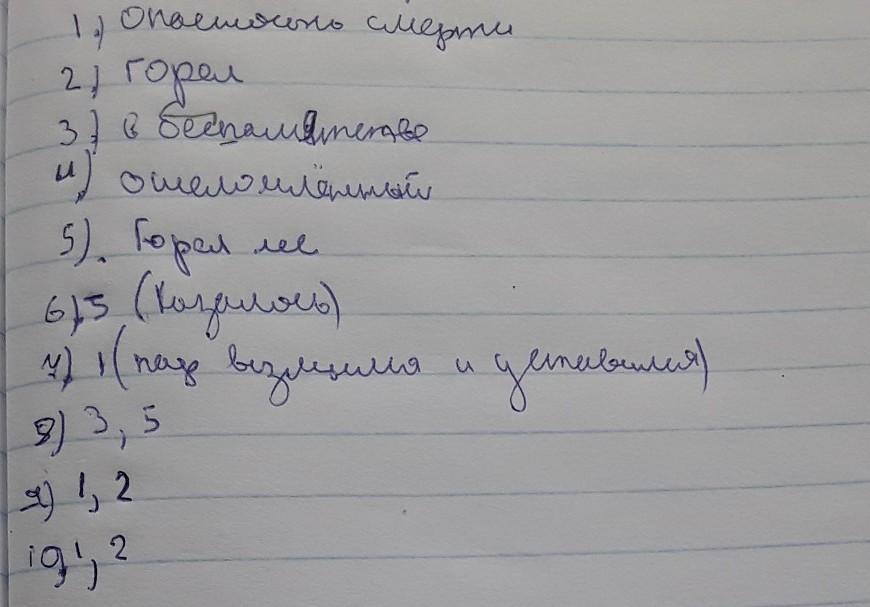 1.) Опасность смерти
2) Горел
3) в беспамятстве
4) ошеломлённый
5). Горел лес
6) 5 (Казалось)
7) 1 ( и уставился)
8) 3, 5
9) 1, 2
10) 1, 2